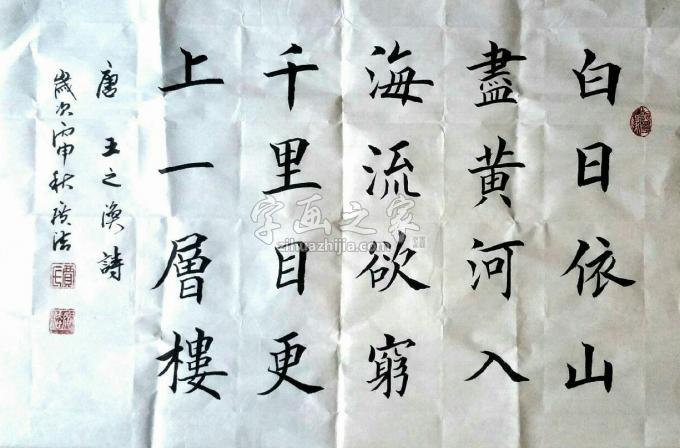 白日依山
盡黄河入
海流欲窮
千里目更
上一層樓
唐 王之渙詩
歲次丙申秋
字画之家
zihuazhijia.com